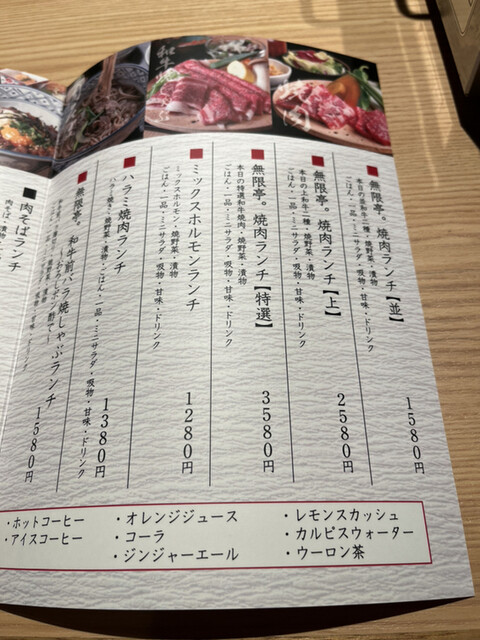 無限亭。焼肉ランチ【並】
本日の並和牛一種・焼野菜・漬物
ごはん・一品・ミニサラダ・吸物・甘味・ドリンク
1580円
無限亭。焼肉ランチ【上】
本日の上和牛二種・焼野菜・漬物
ごはん・一品・ミニサラダ・吸物・甘味・ドリンク
2580円
無限亭。焼肉ランチ【特選】
本日の特選和牛焼肉・焼野菜・漬物
ごはん・一品・ミニサラダ・吸物・甘味・ドリンク
3580円
ミックスホルモンランチ
ミックスホルモン・焼野菜・漬物
ごはん・一品・ミニサラダ・吸物・甘味・ドリンク
1280円
ハラミ焼肉ランチ
ハラミ焼・焼野菜・漬物・ごはん・一品・ミニサラダ・吸物・甘味・ドリンク
1380円
無限亭。和牛肩バラ焼しゃぶランチ
1580円
肉そばランチ
肉そば・漬物
・レモンスカッシュ
・カルピスウォーター
・ウーロン茶
・オレンジジュース
・コーラ
・ジンジャーエール
・ホットコーヒー
・アイスコーヒー